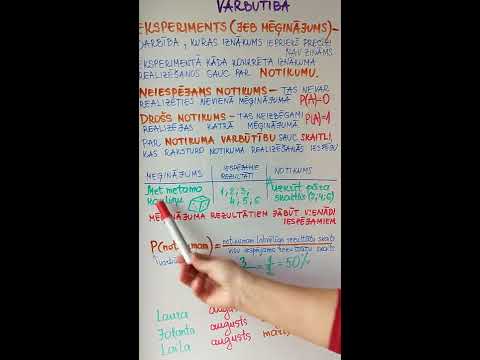 VARBŪTĪBA
EKSPERIMENTS (JEB MĒĢINĀJUMS) –
DARBĪBA, KURAS IZNĀKUMS IEPRIEKŠ PRECĪZI
NAV ZINĀMS
EKSPERIMENTĀ KĀDA KONKRĒTA IZNĀKUMA
REALIZĒŠANOS SAUC PAR NOTIKUMU.
NEIESPĒJAMS NOTIKUMS – TAS NEVAR
REALIZĒTIES NEVIENĀ MĒĢINĀJUMĀ P(A)=0
DROŠS NOTIKUMS – TAS NEIZBĒGAMI
REALIZĒJAS KATRĀ MĒĢINĀJUMĀ P(A)=1
PAR NOTIKUMA VARBŪTĪBU SAUC SKAITLI,
KAS RAKSTURO NOTIKUMA REALIZĒŠANĀS IESPĒJU
MĒĢINĀJUMS IESPĒJAMIE REZULTĀTI NOTIKUMS
Met metamo kauliņu 1, 2, 3, 4, 5, 6 Uzkrīt pāra skaitlis (2; 4; 6)
MĒĢINĀJUMA REZULTĀTIEM JĀBŪT VIENĀDI
IESPĒJAMIEM
notikumam labvēlīgo rezultātu skaits
visu iespējamo rezultātu skaits
= 3 = 1/2 = 50%
Laura augusts
Jolanta augusts
Laila augusts